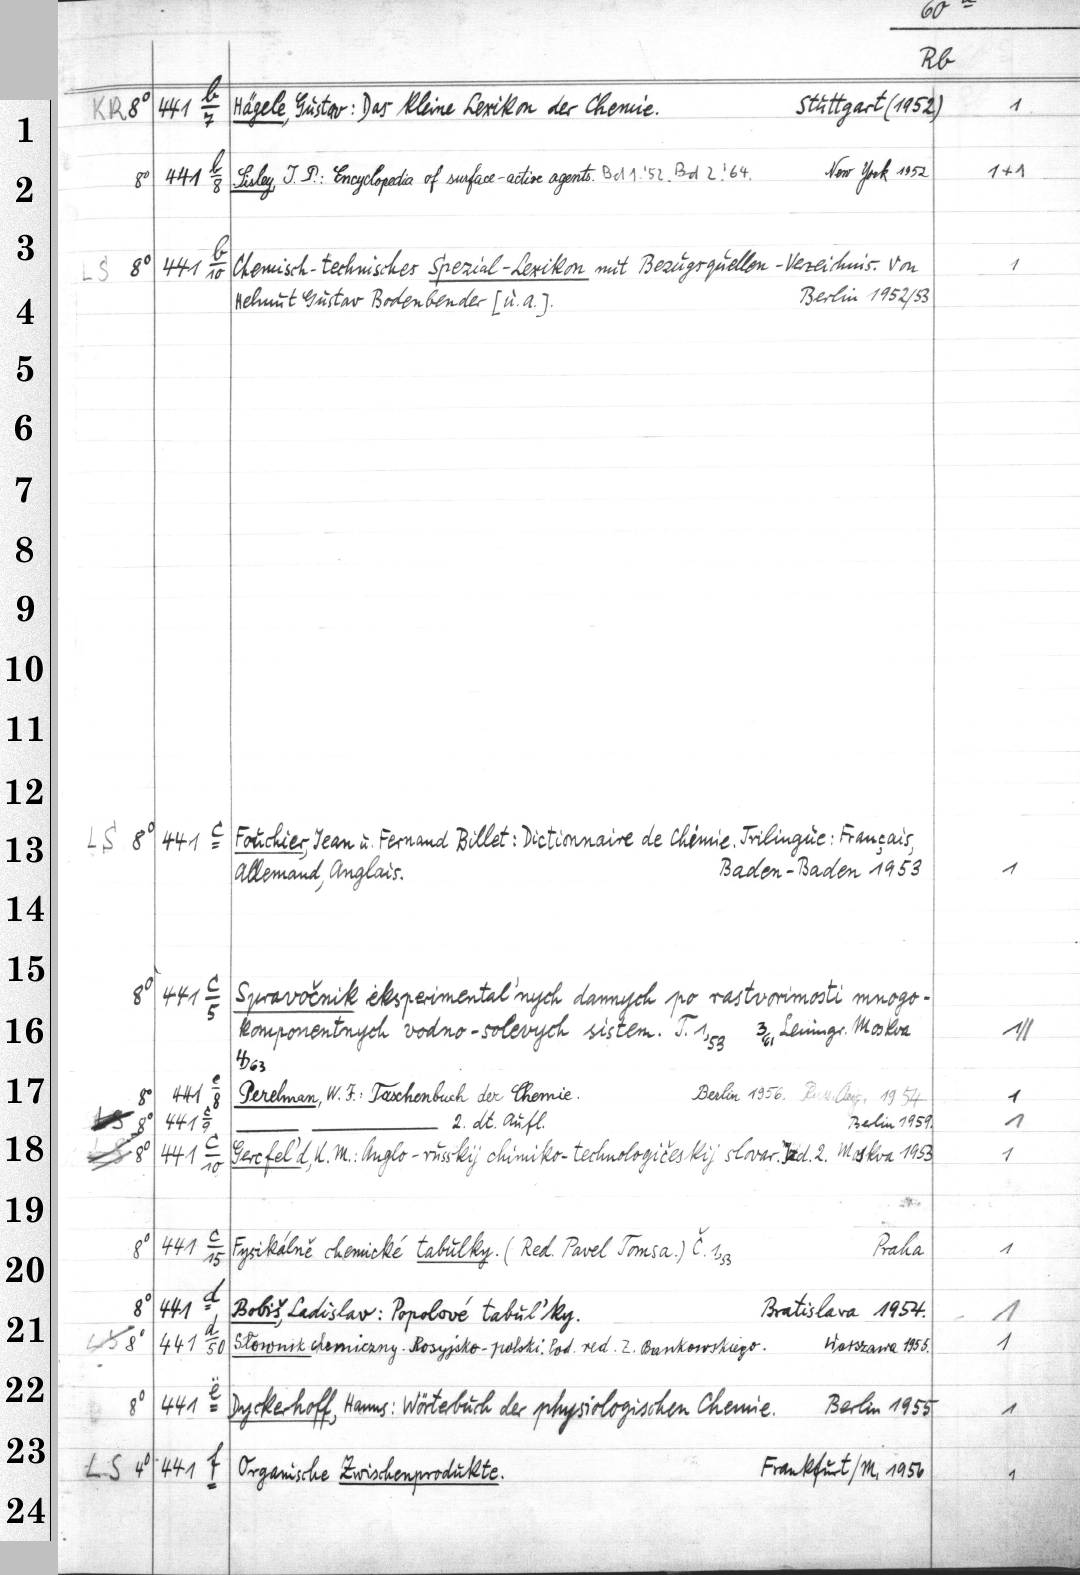 60
Rb
1
KR 8° 441 b/7 Hägele, Gustav: Das kleine Lexikon der Chemie. Stuttgart (1952) 1
2
8° 441 b/8 Sisley, J. P.: Encyclopedia of surface-active agents. Bd 1.'52. Bd 2.'64. New York 1952 1+1
3
LS 8° 441 b/10 Chemisch-technisches Spezial-Lexikon mit Bezugsquellen-Verzeichnis. Von 1
4
Helmut Gustav Bodenbender [u.a.]. Berlin 1952/53
5
6
7
8
9
10
11
12
13
LS 8° 441 c Fouchier, Jean u. Fernand Billet: Dictionnaire de Chémie. Trilingue: Français,
Allemand, Anglais. Baden-Baden 1953 1
14
15
8° 441 c/5 Spravočnik ėksperimental'nych dannych po rastvorimosti mnogo-
16
komponentnych vodno-solevych sistem. T. 1,53 3/61 Leningr. Moskva 1//
4/63
17
8° 441 c/8 Perelman, W. F.: Taschenbuch der Chemie. Berlin 1956. 1954 1
LS 8° 441 c/9 2. dt. Aufl. Berlin 1959. 1
18
LS 8° 441 c/10 Gercfel'd, K. M.: Anglo-russkij chimiko-technologičeskij slovar. Izd. 2. Moskva 1953 1
19
8° 441 c/15 Fysikálně chemické tabulky. (Red. Pavel Tomsa.) Č. 1,53 Praha 1
20
8° 441 d Bobiš, Ladislav: Popolové tabul'ky. Bratislava 1954. 1
21
LS 8° 441 d/50 Słownik chemiczny. Rosyjsko-polski. Pod red. Z. Bankowskiego. Warszawa 1955. 1
22
8° 441 e Dyckerhoff, Hanns: Wörterbuch der physiologischen Chemie. Berlin 1955 1
23
LS 4° 441 f Organische Zwischenprodukte. Frankfurt/M. 1956 1
24